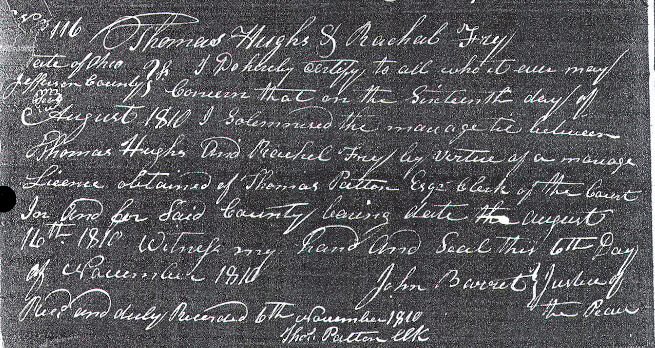 No 116 Thomas Hughs & Rachal Fry
State of Ohio
Jefferson County
I Do hereby certify to all who it ever may
Concern that on the Sixteenth day of
August 1810 I Solemnised the marage tie between
Thomas Hughs And Rachel Frey by Virtue of a marage
Licence obtained of Thomas Patton Esqr Clerk of the Court
In And for Said County baring date the august
16th 1810 Witness my hand And Seal this 6th Day
of November 1810 John Barret Justice of
the Peace
Recd and duly Recorded 6th November 1810
Thos Patton Clk